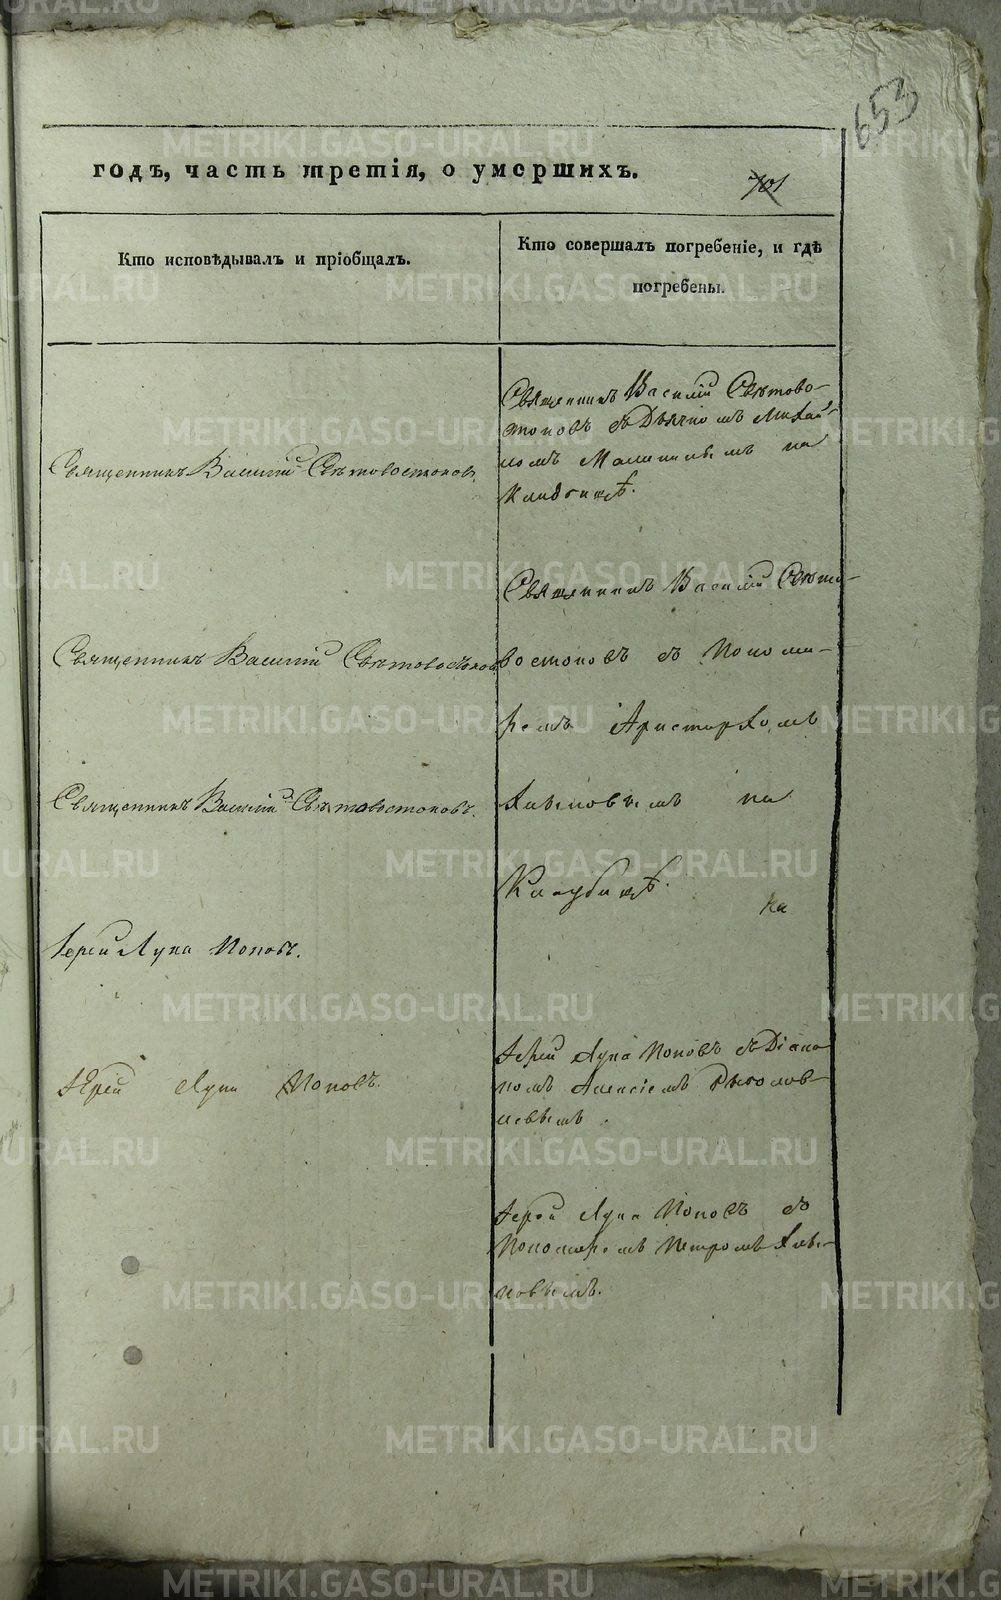 653
годъ, часть третія, о умершихъ.
701
Кто исповѣдывалъ и пріобщалъ.
Кто совершалъ погребеніе, и гдѣ
погребены.
Священникъ Василій Свѣтово-
стоковъ съ Дьячкомъ Михаи-
ломъ на
Кладбищѣ.
Священникъ Василій Свѣтовостоковъ.
Священникъ Василій Свѣто-
Священникъ Василій Свѣтовостоковъ
востоковъ съ Понома-
ремъ Аристархомъ
Священникъ Василій Свѣтовостоковъ.
на
Кладбищѣ.
на
Іерей Лука Поповъ.
Іерей Лука Поповъ съ Діако-
Іерей Лука Поповъ.
номъ Алексіемъ
Іерей Лука Поповъ съ
Пономаремъ Петромъ
METRIKI.GASO-URAL.RU